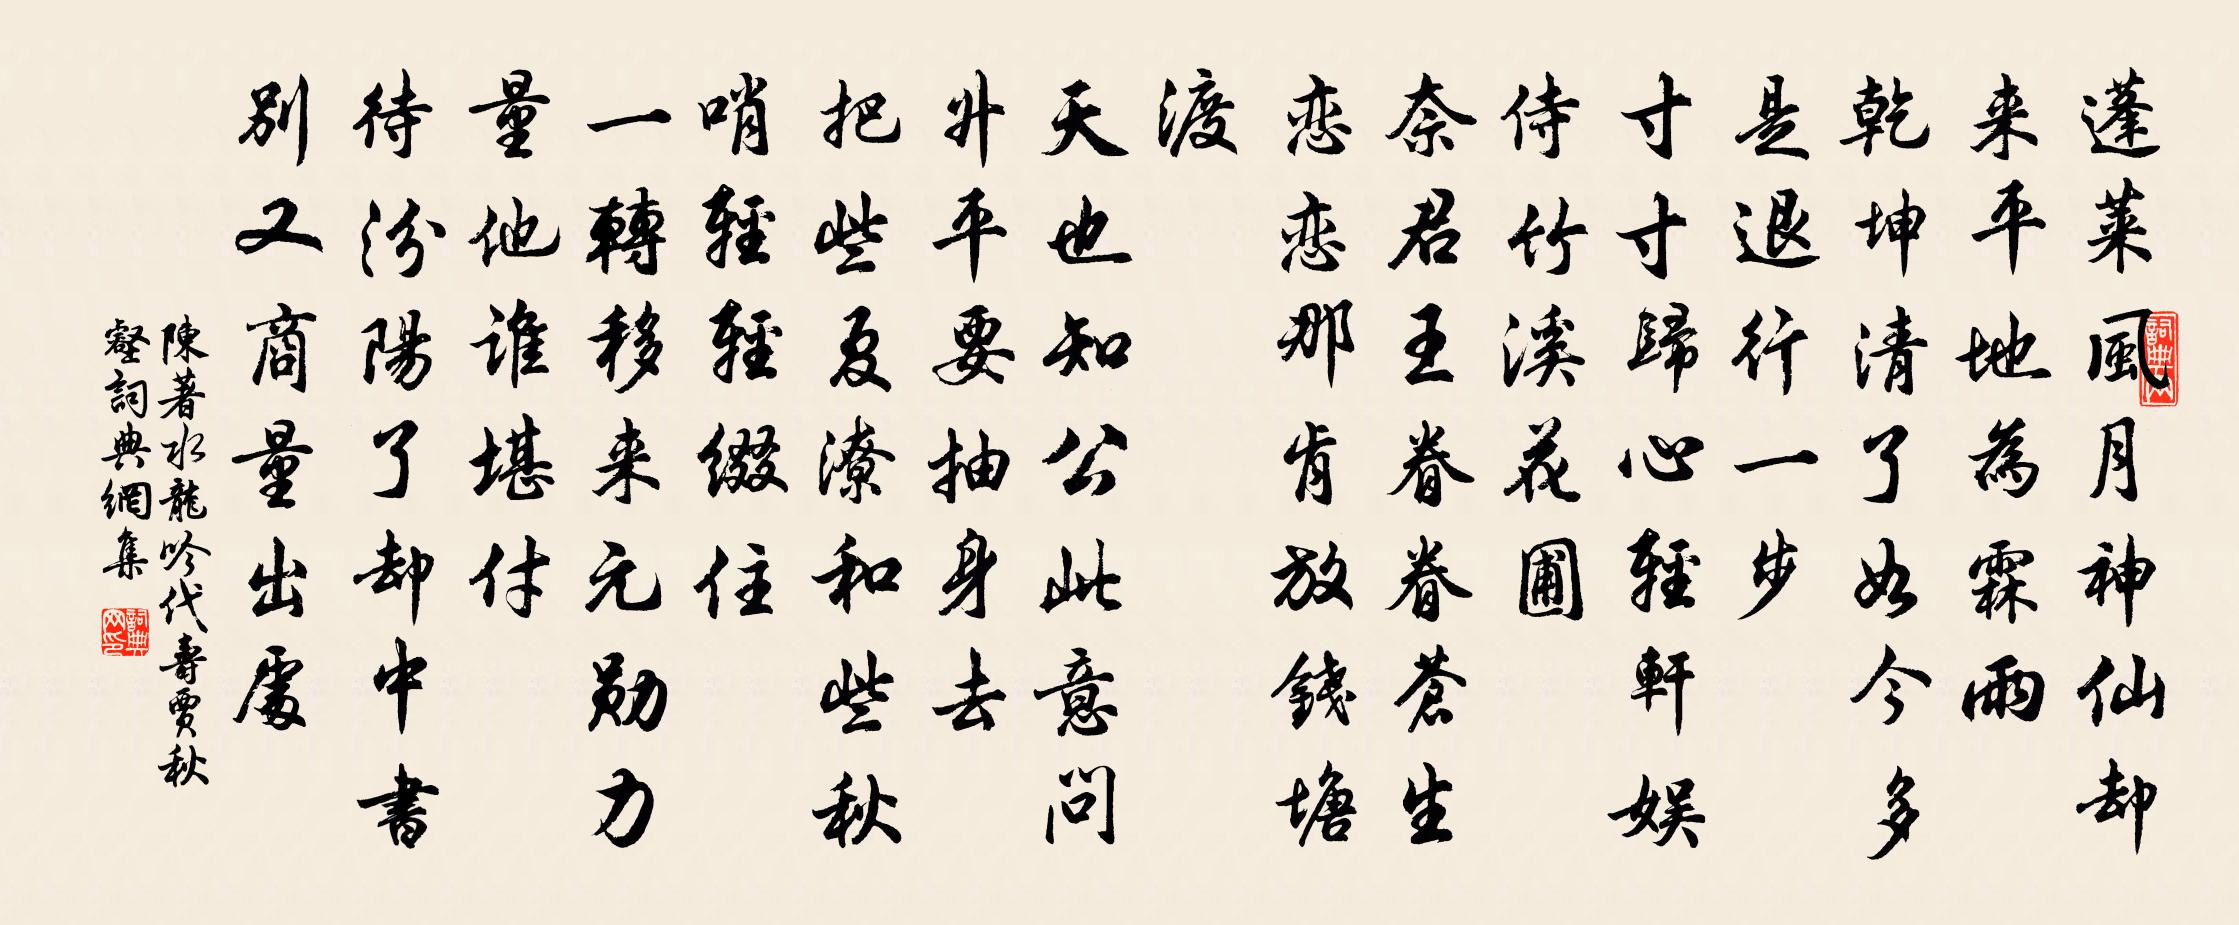 蓬莱風月神仙却
来平地為霖雨
乾坤清了如今多
是退行一步
寸寸歸心輕軒娛
侍竹溪花圃
奈君王眷眷蒼生
戀戀那肯放錢塘
渡
天也知公此意問
升平要抽身去
把些夏潦和些秋
哨輕輕綴住
一轉移来元勛力
量他誰堪付
待汾陽了却中書
別又商量出處
陳著水龍吟代壽賈秋
壑詞典網集
詞典網
詞典網印